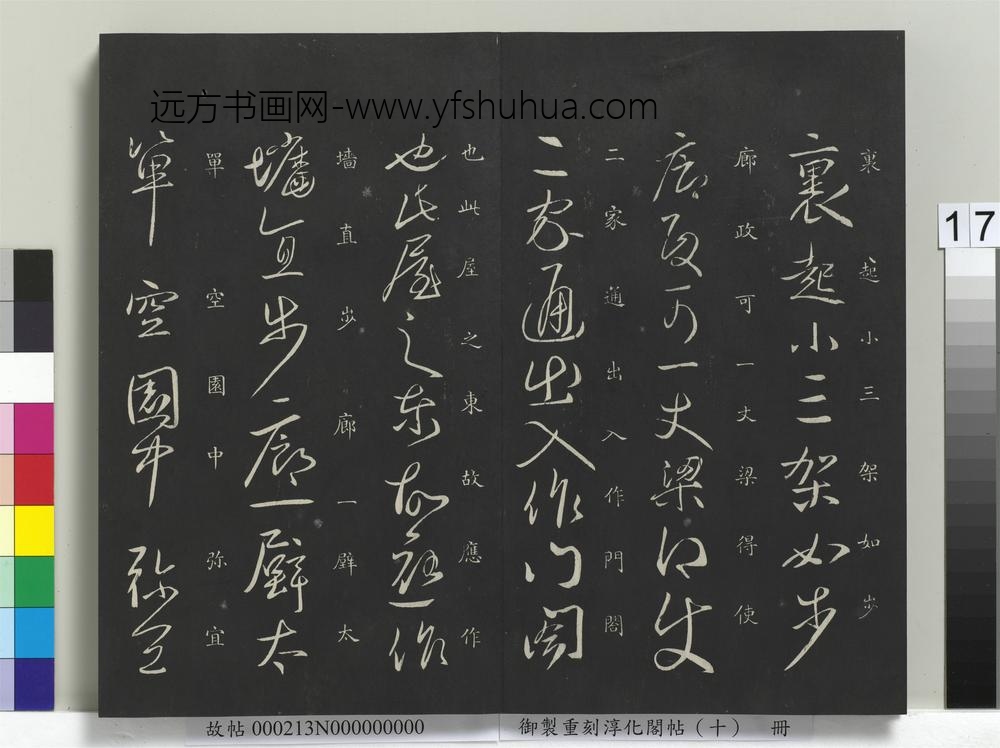 远方书画网-www.yfshuhua.com
裏起小三架如步
裏起小三架如步
廊政可一丈梁得使
廊政可一丈梁得使
二家通出入作門閤
二家通出入作門閤
也此屋之東故應作
也此屋之東故應作
墻直步廊一壁太
墻直步廊一壁太
單空園中弥宜
單空園中弥宜
17
故帖 000213N000000000
御製重刻淳化閣帖(十) 冊